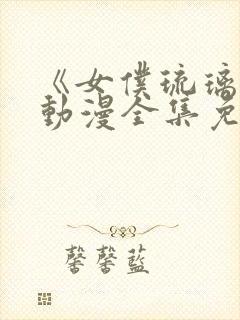 《女僕琉璃
動漫全集免
馨馨藍